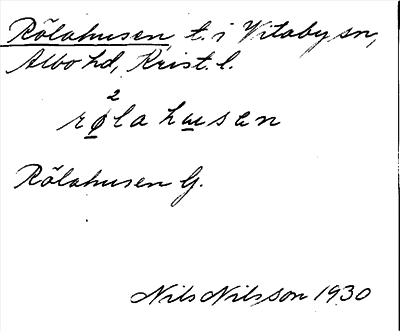 Rölahusen, t. i Vitaby sn,
Albo hd, Krist. l.
2
rølahusen
Rölahusen G.
Nils Nilsson 1930